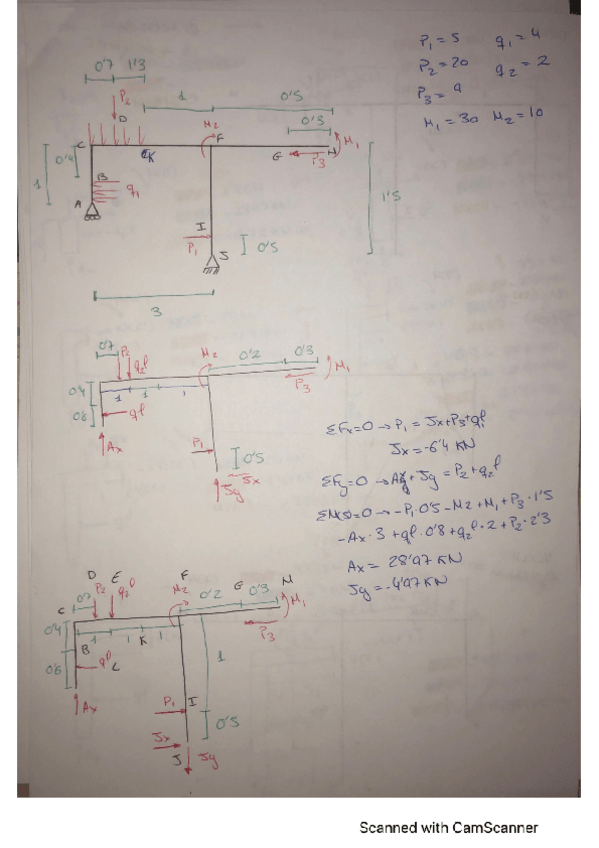 P₁ = 5 q₁ = 4
P₂ = 20 q₂ = 2
P₃ = 9
M₁ = 30 M₂ = 10
0'7 1'3
P₂
1 0'5
D M₂ F 0'3 M₁
C K G P₃ H
1 0'4
B q₁
A
1'5
I
P₁ 0'5
J
3
0'7 P₂ q₂l M₂ 0'2 0'3 M₁
P₃
0'4 1 1 1
0'6 ql
Ax P₁ 0'5
Jy Jx
ΣFx=0 → P₁ = Jx+P₃+q₁l
Jx = -6'4 KN
ΣFy=0 → Ay+Jy = P₂+q₂l
ΣM(J)=0 → -P₁·0'5 - M2 + M₁ + P₃·1'5
-Ax·3 + ql·0'8 + q₂l·2 + P₂·2'3
Ax = 28'97 KN
Jy = -4'97 KN
D E F G H
C 0'7 P₂ q₂l M₂ 0'2 0'3 M₁
P₃
0'4 B 1 1 K 1
0'6 ql L 1
Ax P₁ I
0'5
Jx
J Jy
Scanned with CamScanner